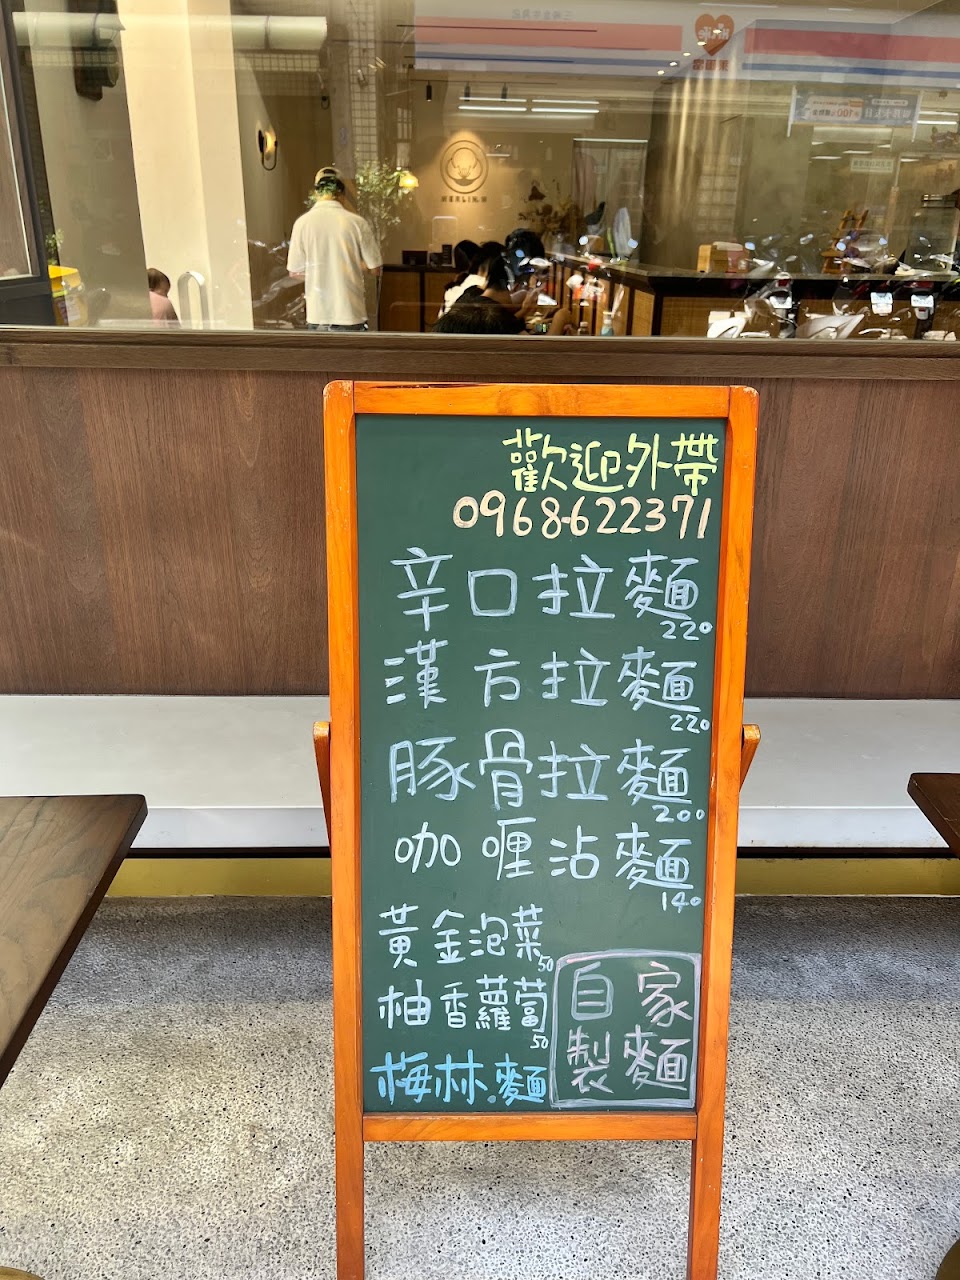 MERLIN.W
歡迎外帶
0968-622371
辛口拉麵
220
漢方拉麵
220
豚骨拉麵
200
咖喱沾麵
140
黃金泡菜
50
柚香蘿蔔
50
梅林.麵
自家
製麵